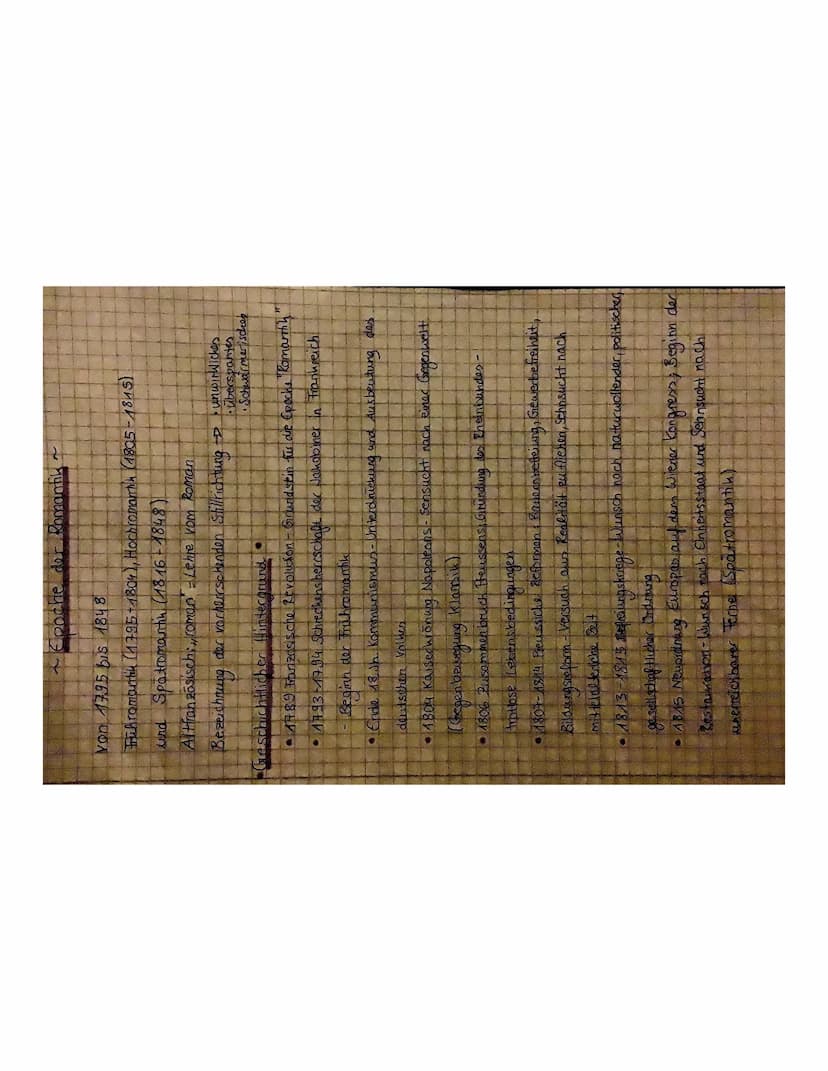 ~ Epoche der Romantik ~
von 1795 bis 1848
Frühromantik (1795-1804), Hochromantik (1805-1815)
und Spätromantik (1816-1848)
Altfranzösisch; „roman" = Lehre vom Roman
Bezeichnung der vorherrschenden Stilrichtung → • unwirkliches
• Überspanntes
• Schwärmerisches
• Geschichtlicher Hintergrund •
• 1789 Französische Revolution - Grundstein für die Epoche "Romantik"
• 1793-1794 Schreckensherrschaft der Jakobiner in Frankreich
- Beginn der Frühromantik
• Ende 18. Jh. Kommunismus - Unterdrückung und Ausbeutung des
deutschen Volkes
• 1804 Kaiserkrönung Napoleons - Sensucht nach einer Gegenwelt
(Gegenbewegung Klassik)
• 1806 Zusammenbruch Preussens, Gründung des Rheinbundes -
trostlose Lebensbedingungen
• 1807-1814 Preussische Reformen: Bauernbefreiung, Gewerbefreiheit,
Bildungsreform - Versuch aus Realität zu fliehen, Sehnsucht nach
mittelalterliche Zeit
• 1813-1815 Befreiungskriege - Wunsch nach naturwollender, politischer,
gesellschaftlicher Ordnung
• 1815 Neuordnung Europas auf dem Wiener Kongress, Beginn der
Restauration - Wunsch nach Einheitsstaat und Sehnsucht nach
unerreichbarer Ferne (Spätromantik)